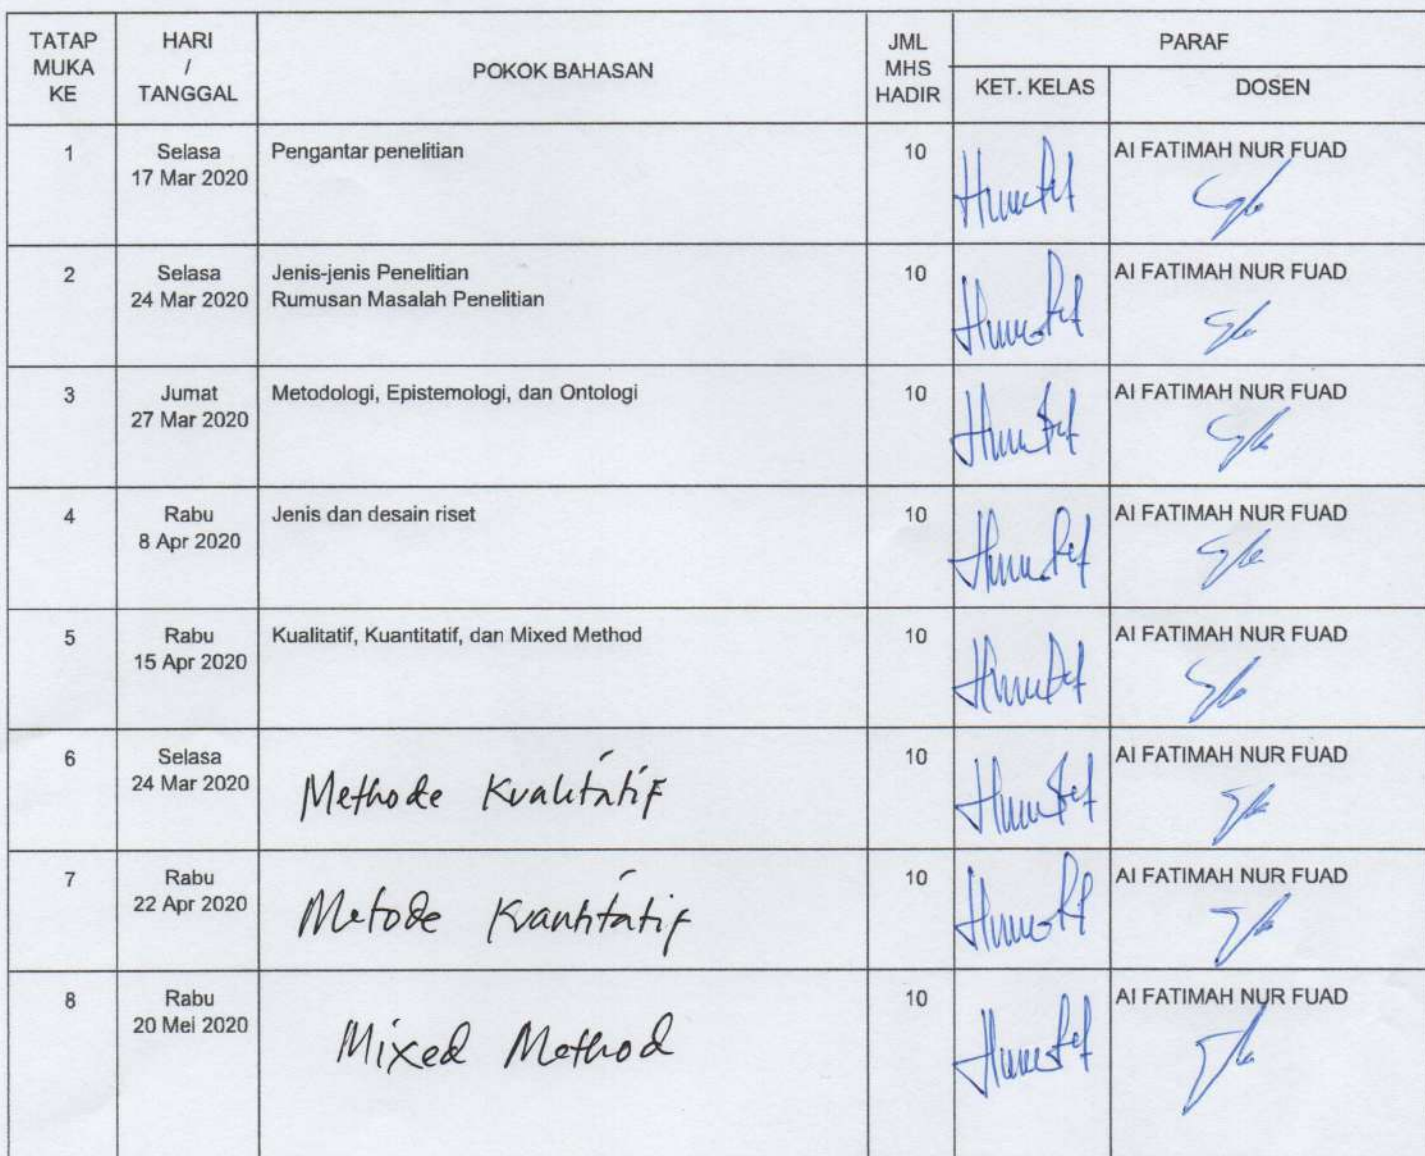 TATAP MUKA KE
HARI / TANGGAL
POKOK BAHASAN
JML MHS HADIR
PARAF
KET. KELAS
DOSEN
1
Selasa
17 Mar 2020
Pengantar penelitian
10
AI FATIMAH NUR FUAD
2
Selasa
24 Mar 2020
Jenis-jenis Penelitian
Rumusan Masalah Penelitian
10
AI FATIMAH NUR FUAD
3
Jumat
27 Mar 2020
Metodologi, Epistemologi, dan Ontologi
10
AI FATIMAH NUR FUAD
4
Rabu
8 Apr 2020
Jenis dan desain riset
10
AI FATIMAH NUR FUAD
5
Rabu
15 Apr 2020
Kualitatif, Kuantitatif, dan Mixed Method
10
AI FATIMAH NUR FUAD
6
Selasa
24 Mar 2020
Methode Kualitatif
10
AI FATIMAH NUR FUAD
7
Rabu
22 Apr 2020
Metode Kuantitatif
10
AI FATIMAH NUR FUAD
8
Rabu
20 Mei 2020
Mixed Method
10
AI FATIMAH NUR FUAD